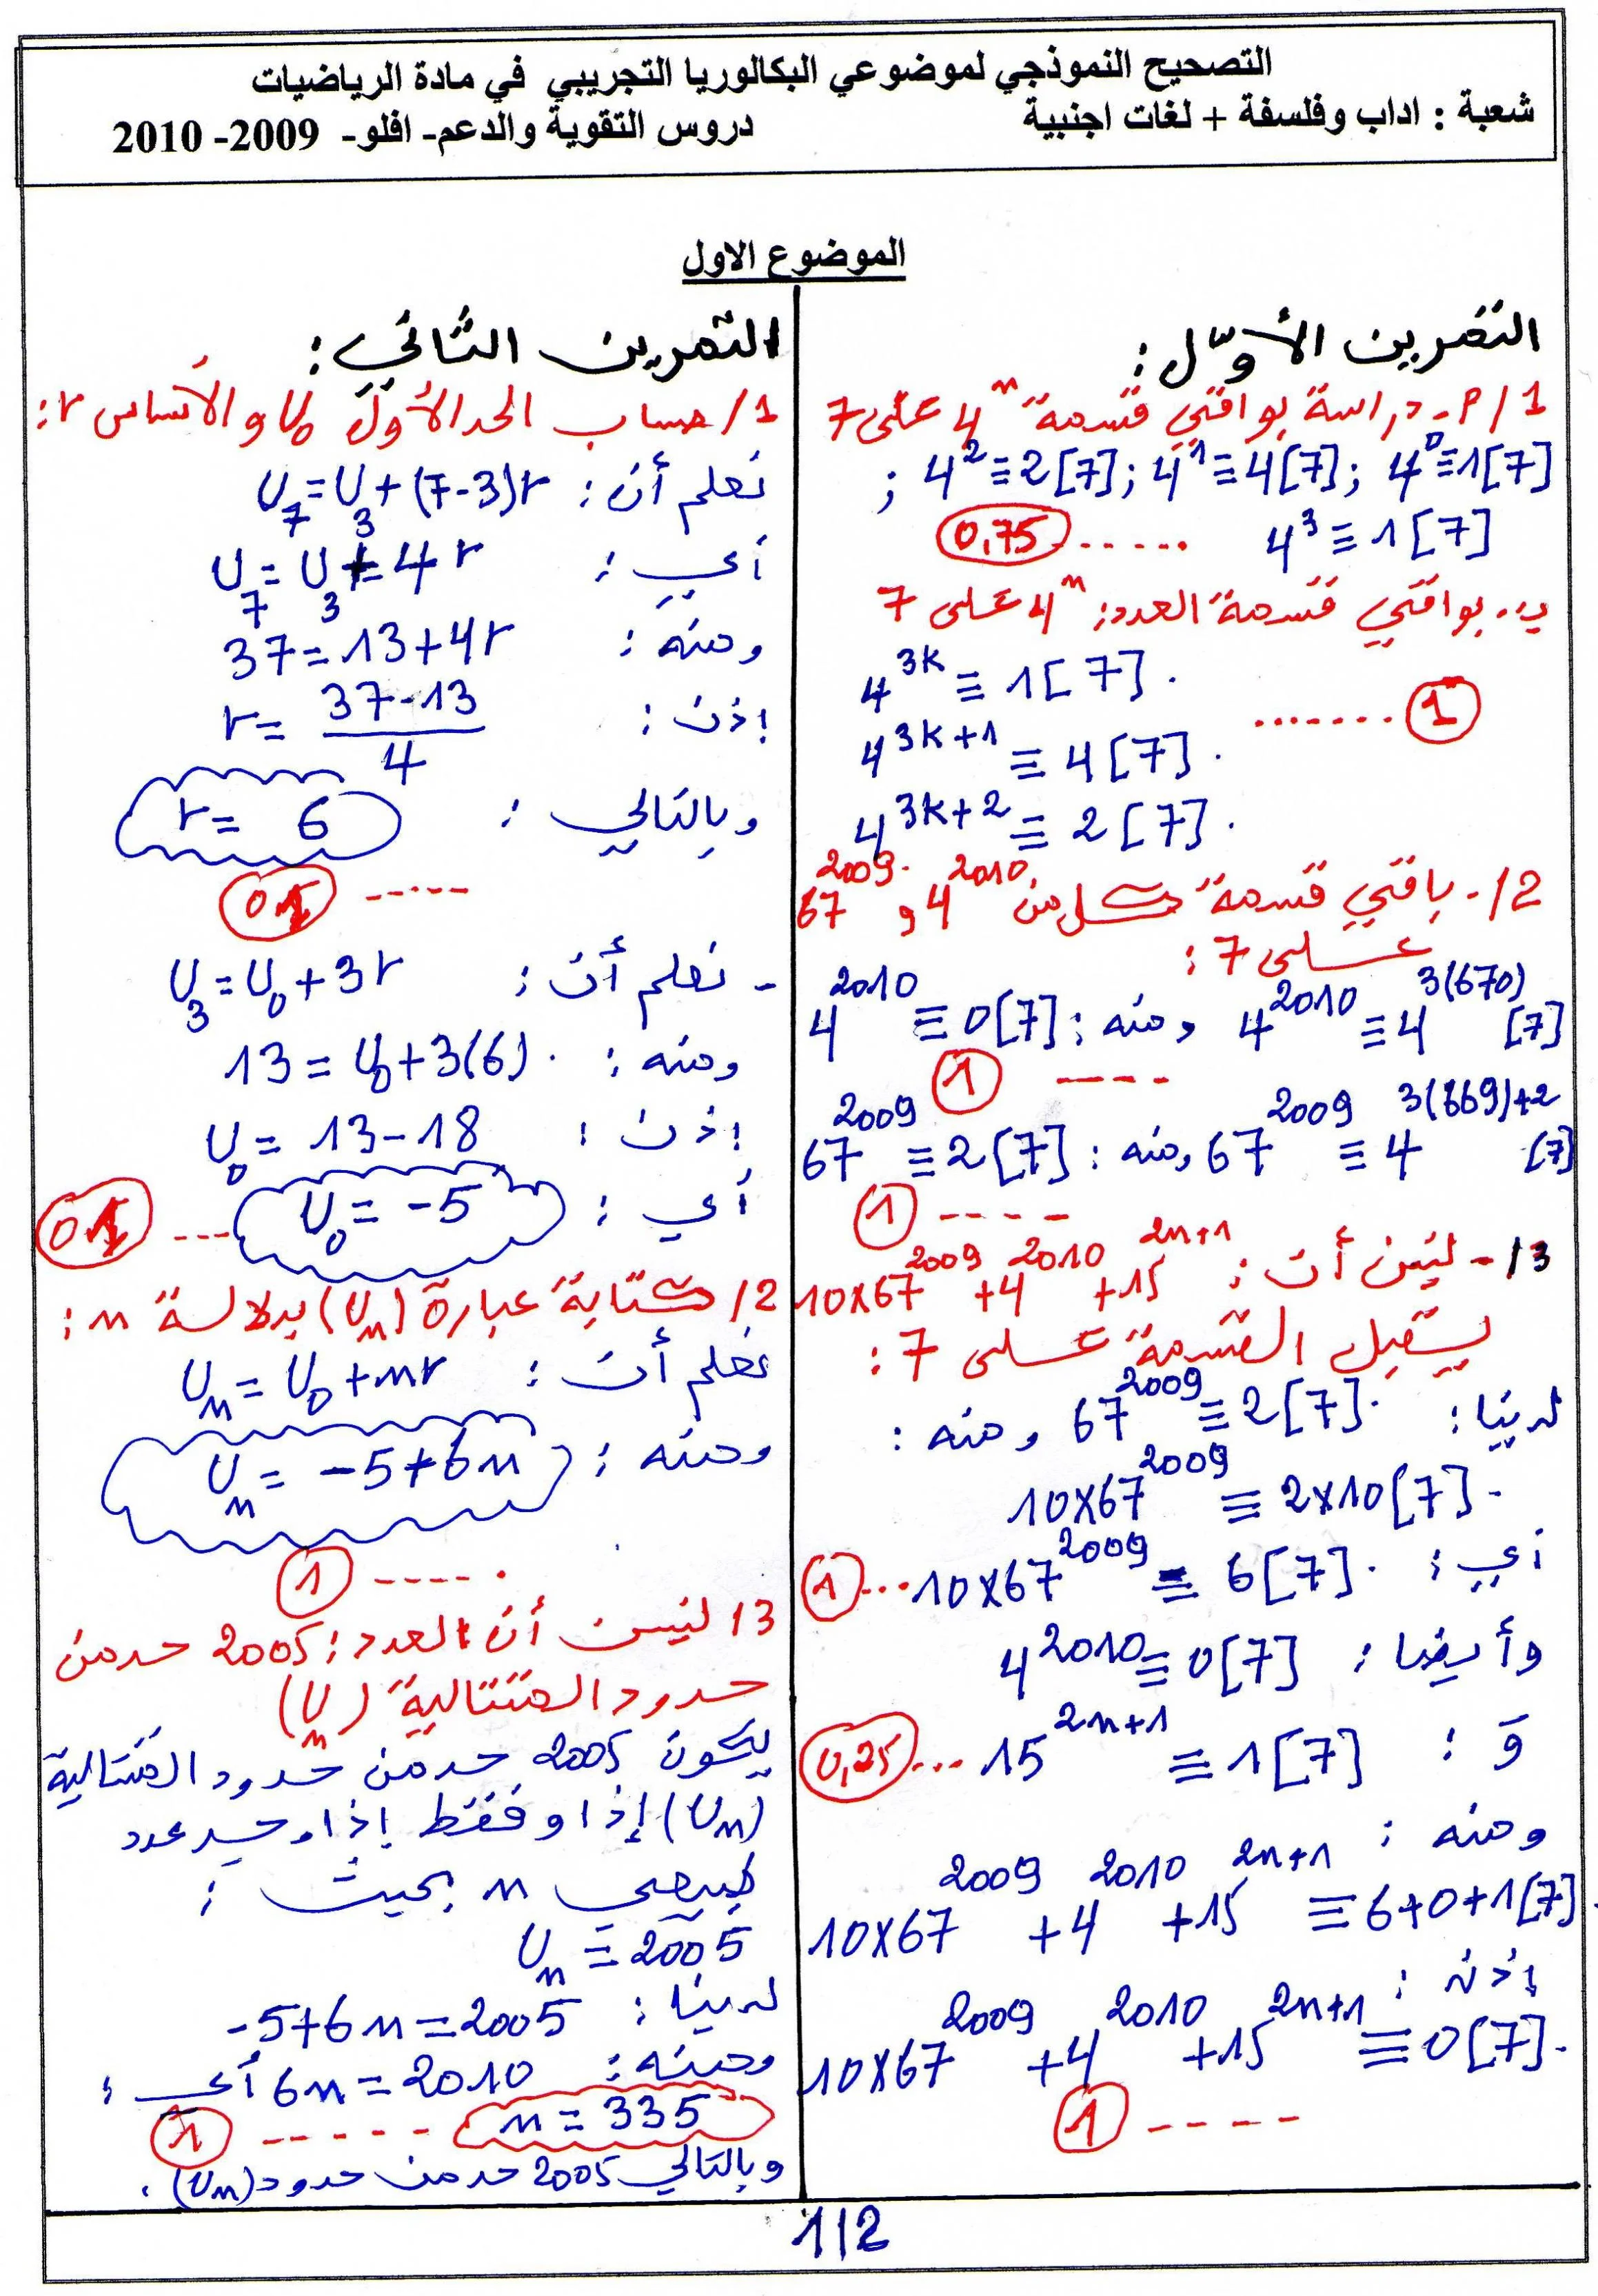 التصحيح النموذجي لموضوعي البكالوريا التجريبي في مادة الرياضيات
شعبة : اداب وفلسفة + لغات اجنبية دروس التقوية والدعم- افلو- 2009- 2010
الموضوع الاول
التمرين الأول :
1/ P- دراسة بواقي قسمة 4ⁿ على 7
4⁰≡1[7] ; 4¹≡4[7] ; 4²≡2[7] ;
4³≡1[7] ...... 0,75
ب- بواقي قسمة العدد: 4ⁿ على 7
4^{3k} ≡ 1[7].
....... 1
4^{3k+1} ≡ 4[7].
4^{3k+2} ≡ 2[7].
2/- باقي قسمة كل من 4^{2010} و 67^{2009}
على 7 :
4^{2010} ≡ 4^{3(670)} [7] ومنه : 4^{2010} ≡ 0[7]
---- 1
67^{2009} ≡ 4^{3(669)+2} [7] ومنه : 67^{2009} ≡ 2[7]
---- 1
3/- لنبين أن : 10×67^{2009} + 4^{2010} + 15^{2n+1}
يقبل القسمة على 7 :
لدينا : 67^{2009} ≡ 2[7]. ومنه :
10×67^{2009} ≡ 2×10[7].
أي : 10×67^{2009} ≡ 6[7]. ... 1
وأيضا : 4^{2010} ≡ 0[7]
و : 15^{2n+1} ≡ 1[7] ... 0,25
ومنه :
10×67^{2009} + 4^{2010} + 15^{2n+1} ≡ 6+0+1[7].
إذن :
10×67^{2009} + 4^{2010} + 15^{2n+1} ≡ 0[7].
---- 1
التمرين الثاني :
1/ حساب الحد الأول U₀ والأساس r :
نعلم أن : U₇ = U₃ + (7-3)r
أي : U₇ = U₃ + 4r
ومنه : 37 = 13+4r
إذن : r = \frac{37-13}{4}
وبالتالي : r = 6
----- 01
- نعلم أن : U₃ = U₀ + 3r
ومنه : 13 = U₀ + 3(6).
إذن : U₀ = 13-18
أي : U₀ = -5 ... 01
2/ كتابة عبارة (Uₙ) بدلالة n :
نعلم أن : Uₙ = U₀ + nr
ومنه : Uₙ = -5+6n
----- 1
3/ لنبين أن العدد : 2005 حد من
حدود المتتالية (Uₙ)
يكون 2005 حد من حدود المتتالية
(Uₙ) إذا وفقط إذا وجد عدد
طبيعي n بحيث :
Uₙ = 2005
لدينا : -5+6n = 2005
ومنه : 6n = 2010 أي :
n = 335 ------ 1
وبالتالي 2005 حد من حدود (Uₙ) .
1/2